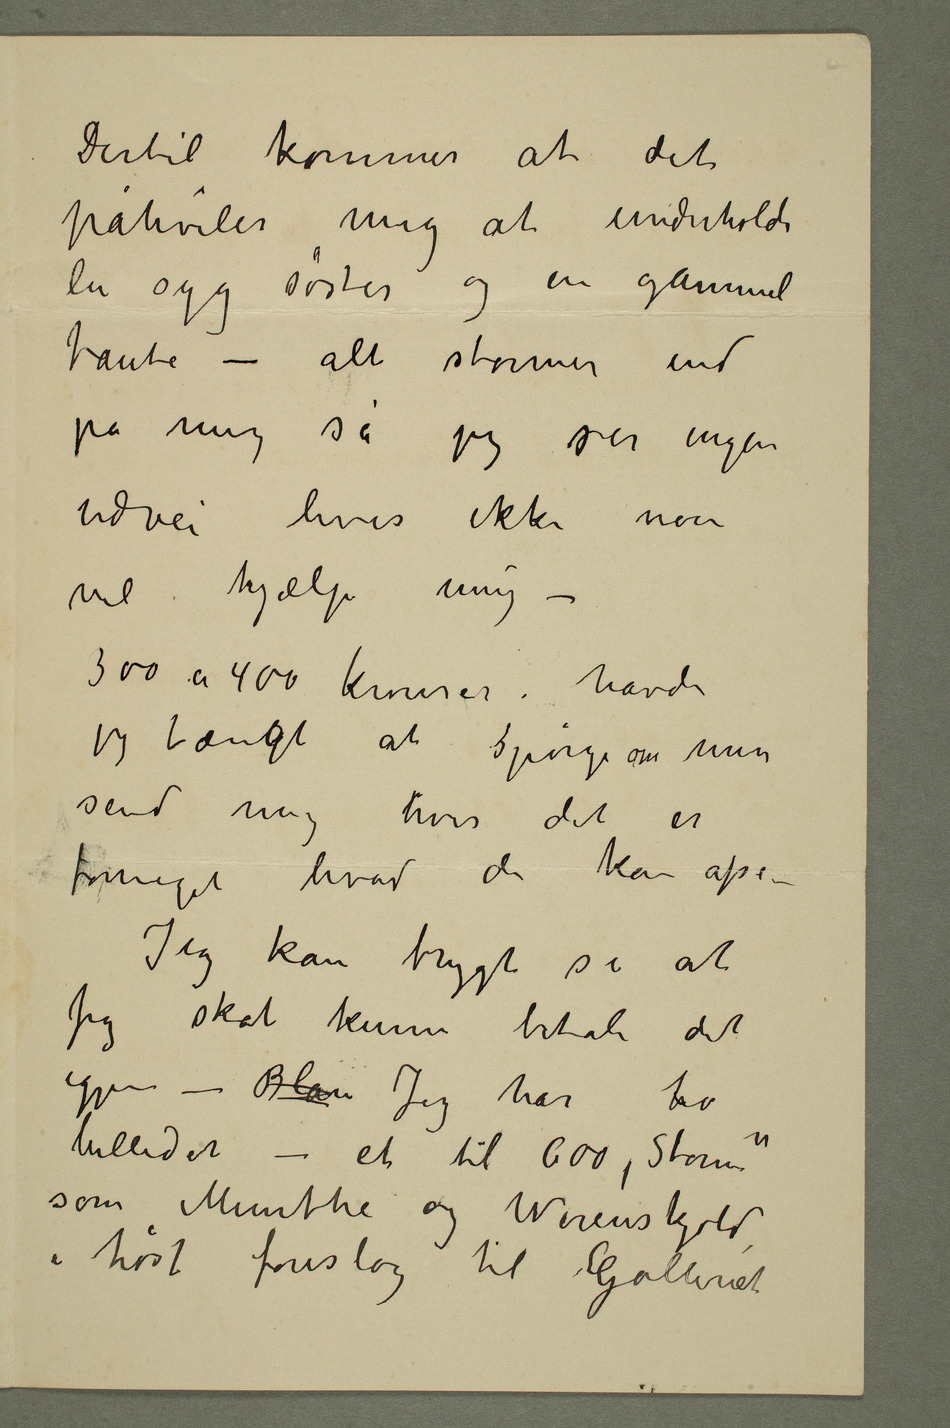 Dertil kommer at det
påhviler mig at underholde
en syg søster og en gammel
tante — alt stormer ind
på mig så jeg ser ingen
udvei hvis ikke noen
vil hjælpe mig —
300 a 400 kroner havde
jeg tænkt at spørge om men
send mig hvis det er
formeget hvad De kan afse —
Jeg kan trygt si at
jeg skal kunne betale det
igjen — Blan Jeg har to
billeder — et til 600, „Storm"
som Munthe og Werenskjold
i høst foreslog til Galleriet